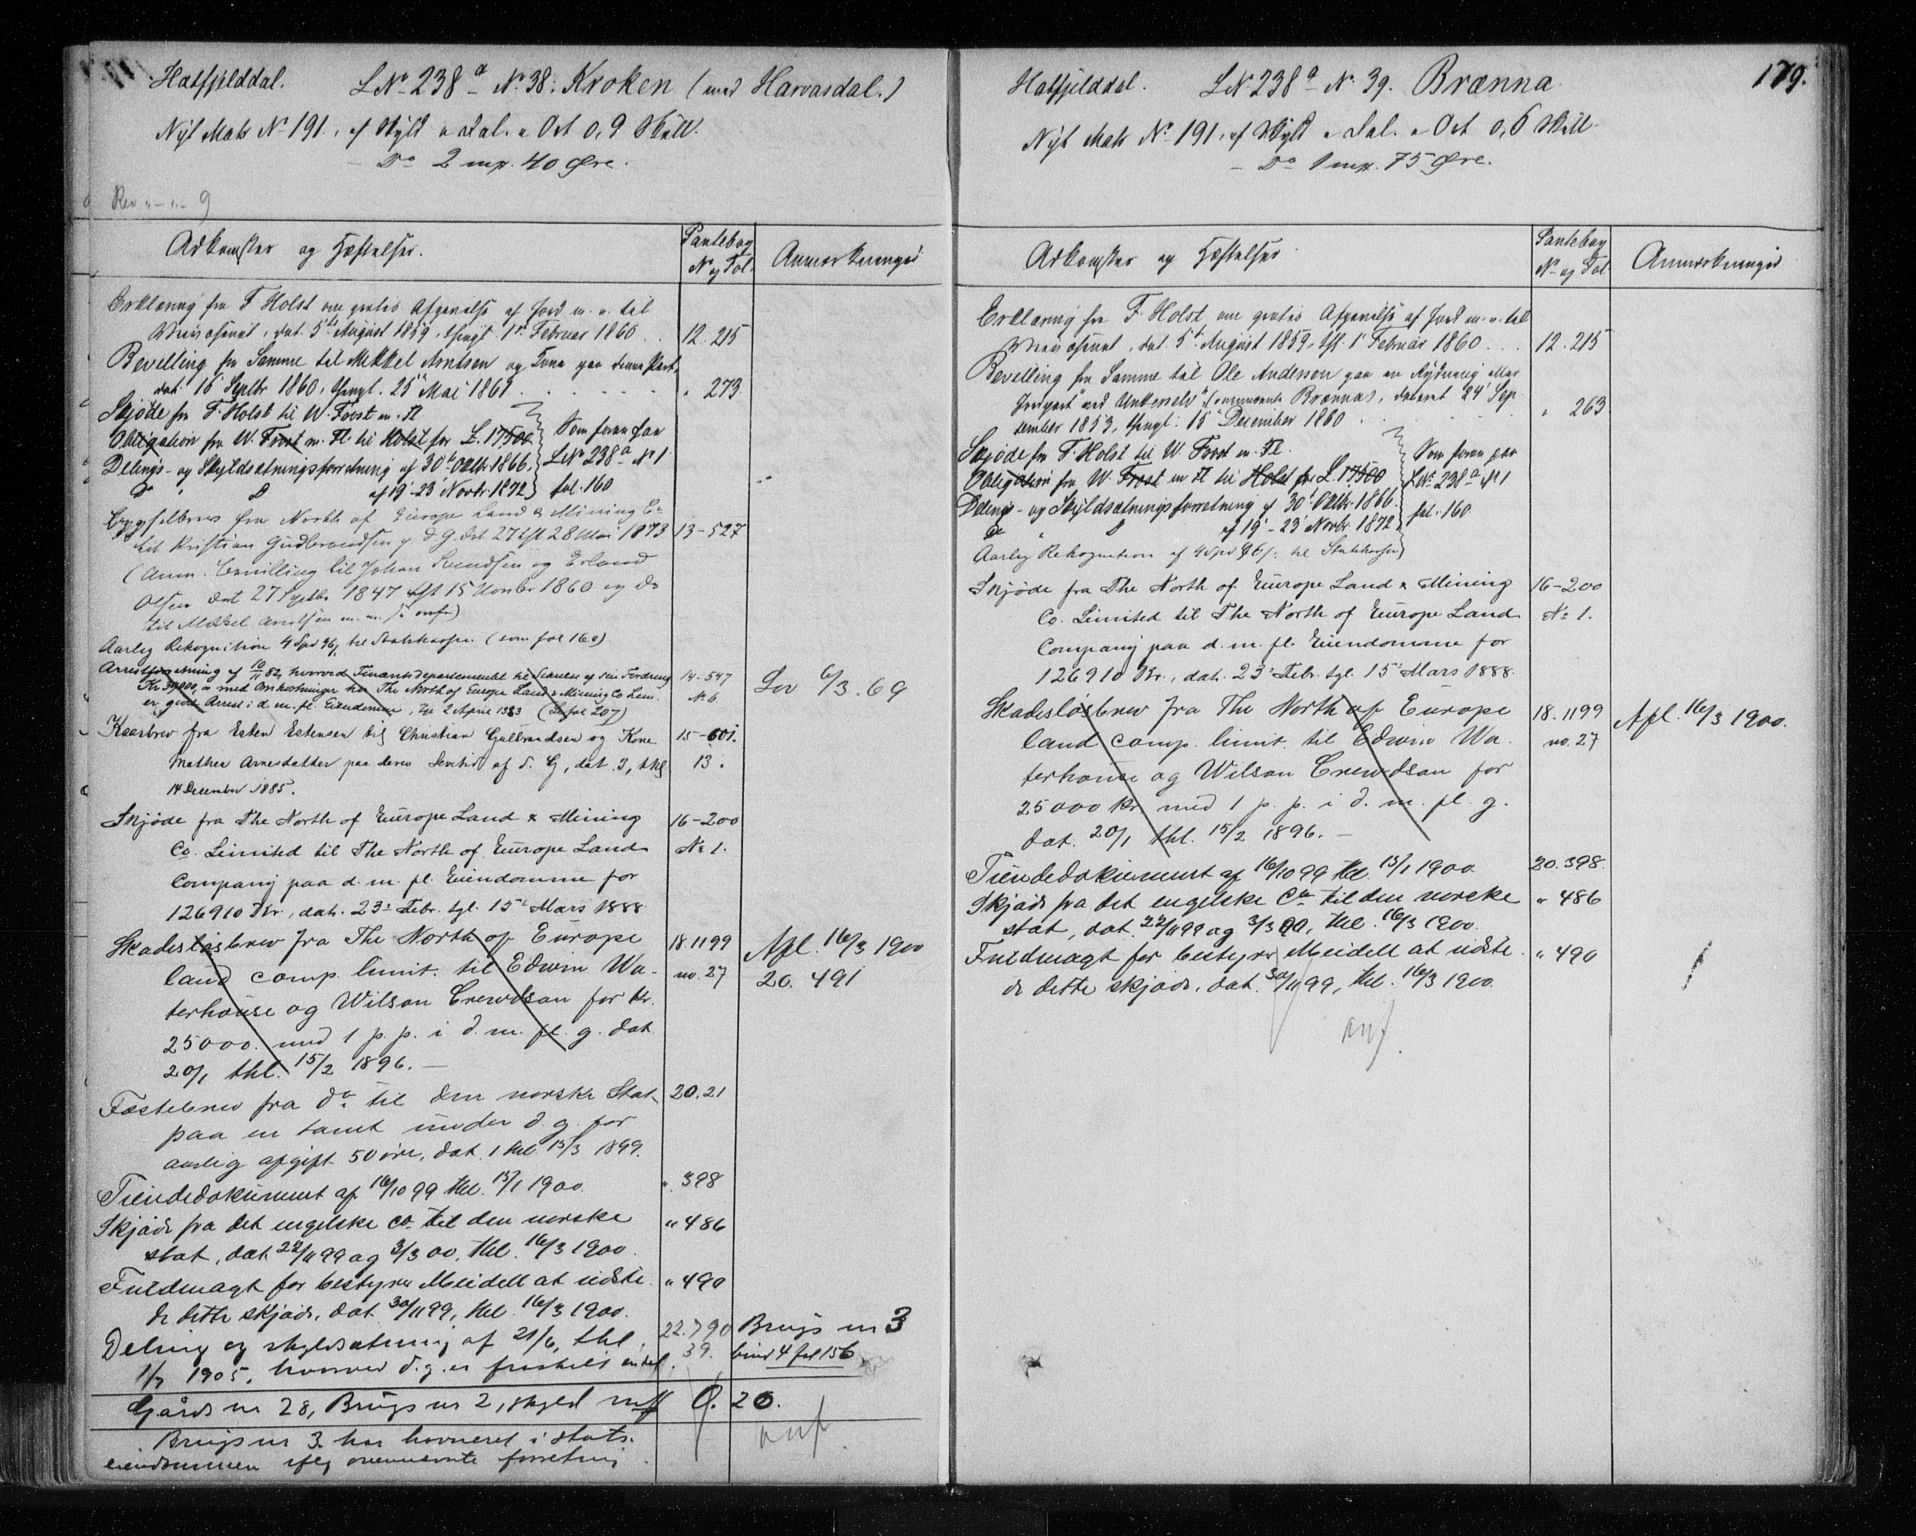 Hatfjelddal. LNo 238a No 38. Kroken (med Harvasdal.)
Nyt Matr No 191, af Skyld " Dal. " Ort 0,9 Skill.
- Do 2 mrk. 40 Øre.
Rev " - " - 9
Adkomster og Hæftelser.
Pantebog
No og Fol.
Anmærkninger
Erklæring fra F. Holst om gratis Afgivelse af Jord m. v. til
dat. 5te August 1859, thingl. 1ste Februar 1860 . . 12. 215
Bevilling fra Samme til Mikkel Arntsen og Kone paa denne Part,
dat. 15 Septbr 1860, thingl. 25de Mai 1861 . . . " 273
Skjøde fra F. Holst til W. Frost m. Fl.
Obligation fra W. Frost m. Fl. til Holst for £ 17500
Delings- og Skyldsætningsforretning af 30te Oktbr. 1866,
Do " D af 19'-23' Novbr. 1872
Som foran paa
LNo 238a No 1
fol. 160
Bygselbrev fra North of Europe Land & Mining Co
til Kristian Gudbrandsen p. d. G. dat 27 thl 28 Mai 1873 13-527
(Anm. Bevilling til Johan Knudsen og Erland
Olsen dat 27 Septbr 1847 thl 15 Novbr 1860 og Do
til Mikkel Arntsen m. m. se ovenfor)
Aarlig Rekognition 4 Spd 96 s. til Statskassen (som fol 160)
Arrestforretning af 10/11 82, hvorved Finansdepartementet til Sikkerhed af sin Fordring 14-547
Kr 39000, " med Omkostninger hos The North of Europe Land & Mining Co Lim. No 6
er gjort Arrest i d. m. fl. Eiendomme, Tgl 2 April 1883 (Se fol 207)
Lov 6/3. 69
Kaarbrev fra Esten Estensen til Christian Gulbrandsen og Kone 15-601.
Marthea Arnesdatter paa deres Levetid af d. G, dat. I, thl 13.
14 December 1885.
Skjøde fra The North of Europe Land & Mining 16-200
Co. Limited til The North of Europe Land No 1.
Company paa d. m. fl. Eiendomme for
126910 Kr., dat. 23' Febr. tgl. 15' Mars 1888
Skadesløsbrev fra The North of Europe 18. 1199
land comp. limit. til Edwin Wa- no. 27
terhouse og Wilson Crewdson for kr.
25000. med 1 p. p. i d. m. fl. g. dat.
20/1 thl. 15/2 1896. —
Afl. 16/3 1900
20. 491
Fæstebrev fra do. til den norske Stat 20. 21
paa en tomt under d. g. for
aarlig afgift 50 øre, dat. 1 thl. 13/3 1899.
Tiendedokument af 16/10 99 thl. 15/1 1900. ". 398
Skjøde fra det engelske Co. til den norske " 486
stat, dat. 22/11 99 og 3/3 00, thl. 16/3 1900.
Fuldmagt for bestyrer Meidell at udste- " 490
de dette skjøde, dat. 30/11 99, thl. 16/3 1900.
Deling og skyldsætning af 21/6, thl. 22. 790 Brugs nr 3
1/7 1905, hvorved d. g. er fraskilt en del. 39. bind 4 fol 156
Gårds nr 28, Brugs nr 2, skyld mk 0. 20.
Brugs nr 3 har havneret i stats-
eiendommen iflg ovennævnte forretning.
anf.
179.
Hatfjelddal. LNo 238a No. 39. Brænna.
Nyt Matr No 191, af Skyld " Dal. " Ort 0,6 Skill.
- Do 1 mrk. 75 Øre.
Adkomster og Hæftelser
Pantebog
No og Fol.
Anmærkninger
Erklæring fra F. Holst om gratis Afgivelse af Jord m. v. til
dat. 5te August 1859, thl. 1' Februar 1860 . . . 12. 215
Bevilling fra Samme til Ole Andersen paa en Rydning
ved Unkerelv Brænnas, dateret 24' Sep-
tember 1853, thingl. 15' December 1860 . . . " 263
Skjøde fra F. Holst til W. Frost m. Fl.
Obligation fra W. Frost m. Fl. til Holst for £ 17500
Delings- og Skyldsætningsforretning af 30te Oktbr. 1866.
Do " D af 19'-23' Novbr. 1872
Aarlig Rekognition af 4 Spd 96 s. til Statskassen
Som foran paa
LNo 238a No 1
fol. 160
Skjøde fra The North of Europe Land & Mining 16-200
Co. Limited til The North of Europe Land No 1.
Company paa d. m. fl. Eiendomme for
126910 Kr., dat. 23' Febr. tgl. 15' Mars 1888.
Skadesløsbrev fra The North of Europe 18. 1199
land comp. limit. til Edwin Wa- no. 27
terhouse og Wilson Crewdson for
25000 kr. med 1 p. p. i d. m. fl. g.
dat. 20/1 thl. 15/2 1896. —
Afl. 16/3 1900.
Tiendedokument af 16/10 99 thl. 15/1 1900. 20. 398.
Skjøde fra det engelske Co. til den norske " 486
stat, dat. 22/11 99 og 3/3 00, thl. 16/3 1900.
Fuldmagt for bestyrer Meidell at udste- " 490
de dette skjøde, dat. 30/11 99, thl. 16/3 1900.
anf.